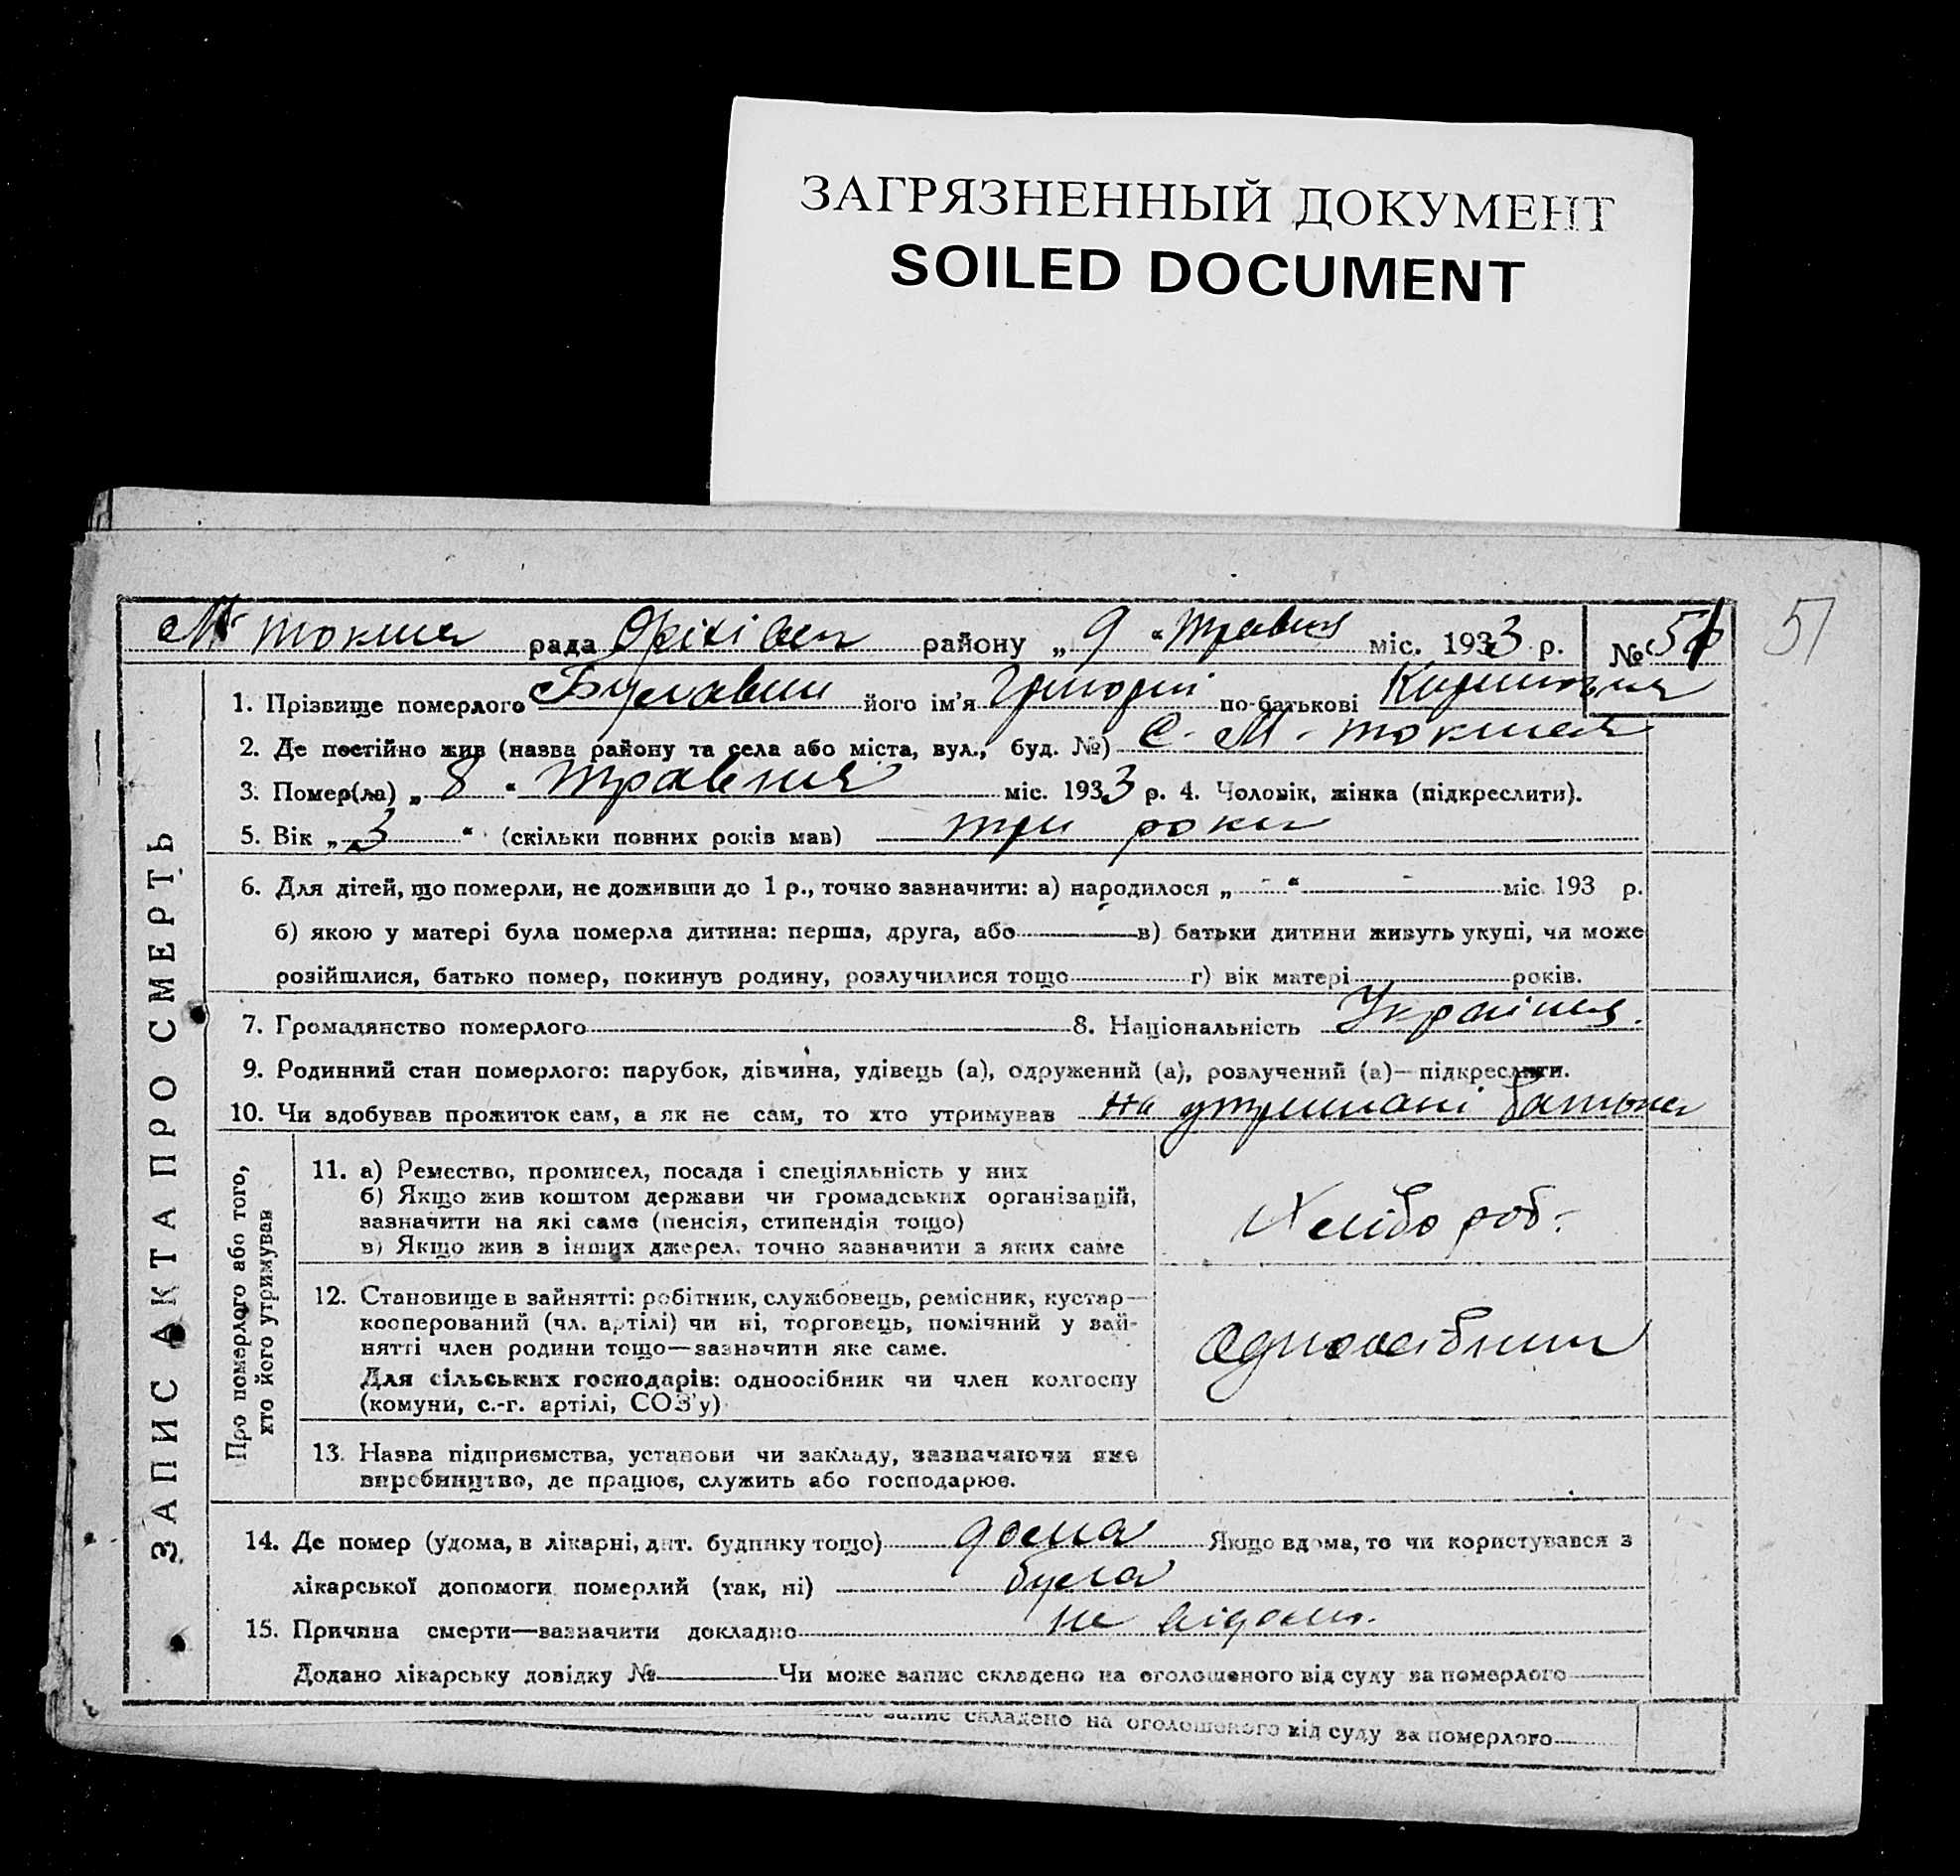 ЗАГРЯЗНЕННЫЙ ДОКУМЕНТ
SOILED DOCUMENT
М токмач рада Оріхівсь району „ 9 “ травня міс. 1933 р. № 51
51
ЗАПИС АКТА ПРО СМЕРТЬ
1. Прізвище померлого його ім'я Григорій по-батькові
2. Де постійно жив (назва району та села або міста, вул., буд. №) С. М-токмач
3. Помер(ла) „ 8 “ травня міс. 1933 р. 4. Чоловік, жінка (підкреслити).
5. Вік „ 3 “ (скільки повних років мав) три роки
6. Для дітей, що померли, не доживши до 1 р., точно зазначити: а) народилося „ - “ - міс. 193 р.
б) якою у матері була померла дитина: перша, друга, або в) батьки дитини живуть укупі, чи може
розійшлися, батько помер, покинув родину, розлучилися тощо г) вік матері років.
7. Громадянство померлого 8. Національність Українця.
9. Родинний стан померлого: парубок, дівчина, удівець (а), одружений (а), розлучений (а)—підкреслити.
10. Чи здобував прожиток сам, а як не сам, то хто утримував на утримані батька
Про померлого або того,
хто його утримував
11. а) Ремество, промисел, посада і спеціяльність у них
б) Якщо жив коштом держави чи громадських організацій,
зазначити на які саме (пенсія, стипендія тощо)
в) Якщо жив з інших джерел, точно зазначити з яких саме
Хлібороб.
12. Становище в зайнятті: робітник, службовець, ремісник, кустар—
кооперований (чл. артілі) чи ні, торговець, помічний у зай-
нятті член родини тощо—зазначити яке саме.
Для сільських господарів: одноосібник чи член колгоспу
(комуни, с.-г. артілі, СОЗ'у)
Одноосібник
13. Назва підприємства, установи чи закладу, зазначаючи яке
виробництво, де працює, служить або господарює.
14. Де помер (удома, в лікарні, дит. будинку тощо) дома Якщо вдома, то чи користувався з
лікарської допомоги померлий (так, ні) була
15. Причина смерти—зазначити докладно не відомо.
Додано лікарську довідку № Чи може запис складено на оголошеного від суду за померлого
запис складено на оголошеного від суду за померлого